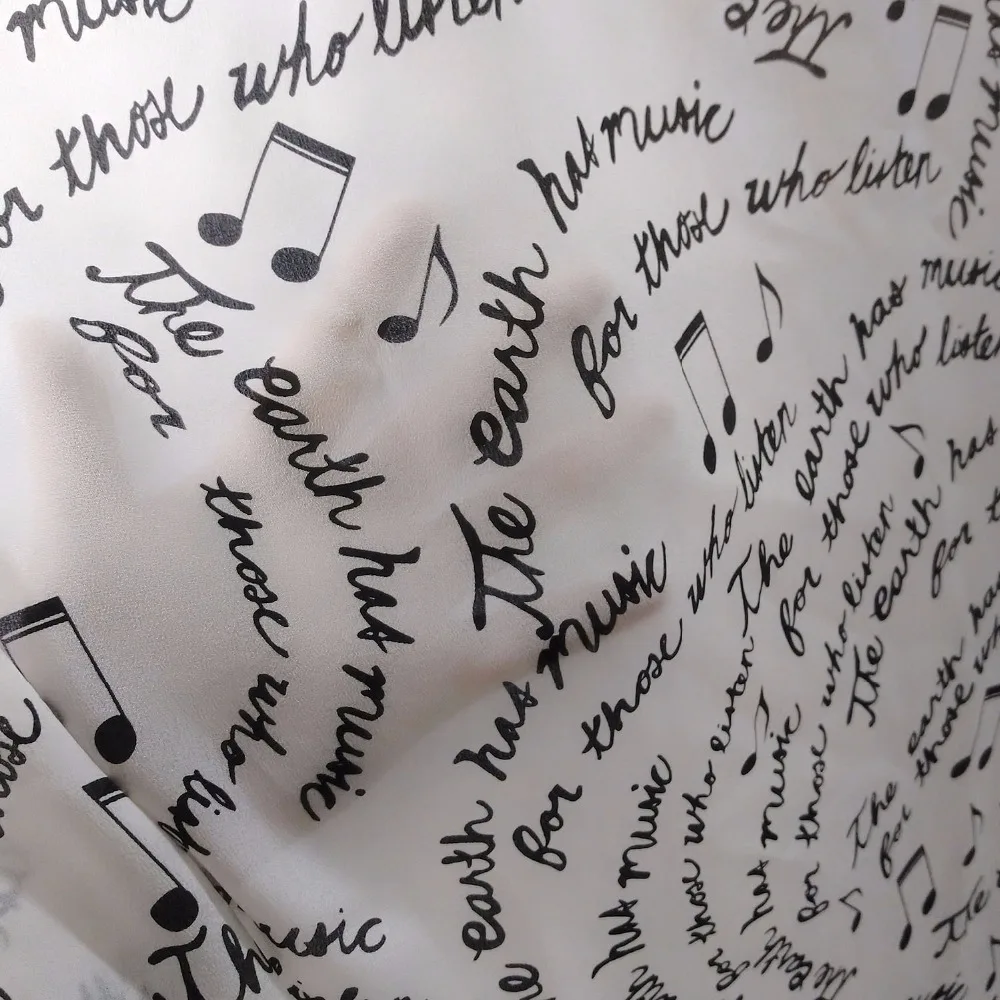 music
or those who listen
The
The earth has music
for those who listen
The earth has music
for those who listen
music
earth has music
for those who listen
The earth has music
for those who listen
The earth has
for those who listen
for
earth has music
those who listen
has music
for those
The earth
for those who
The
music
The
earth